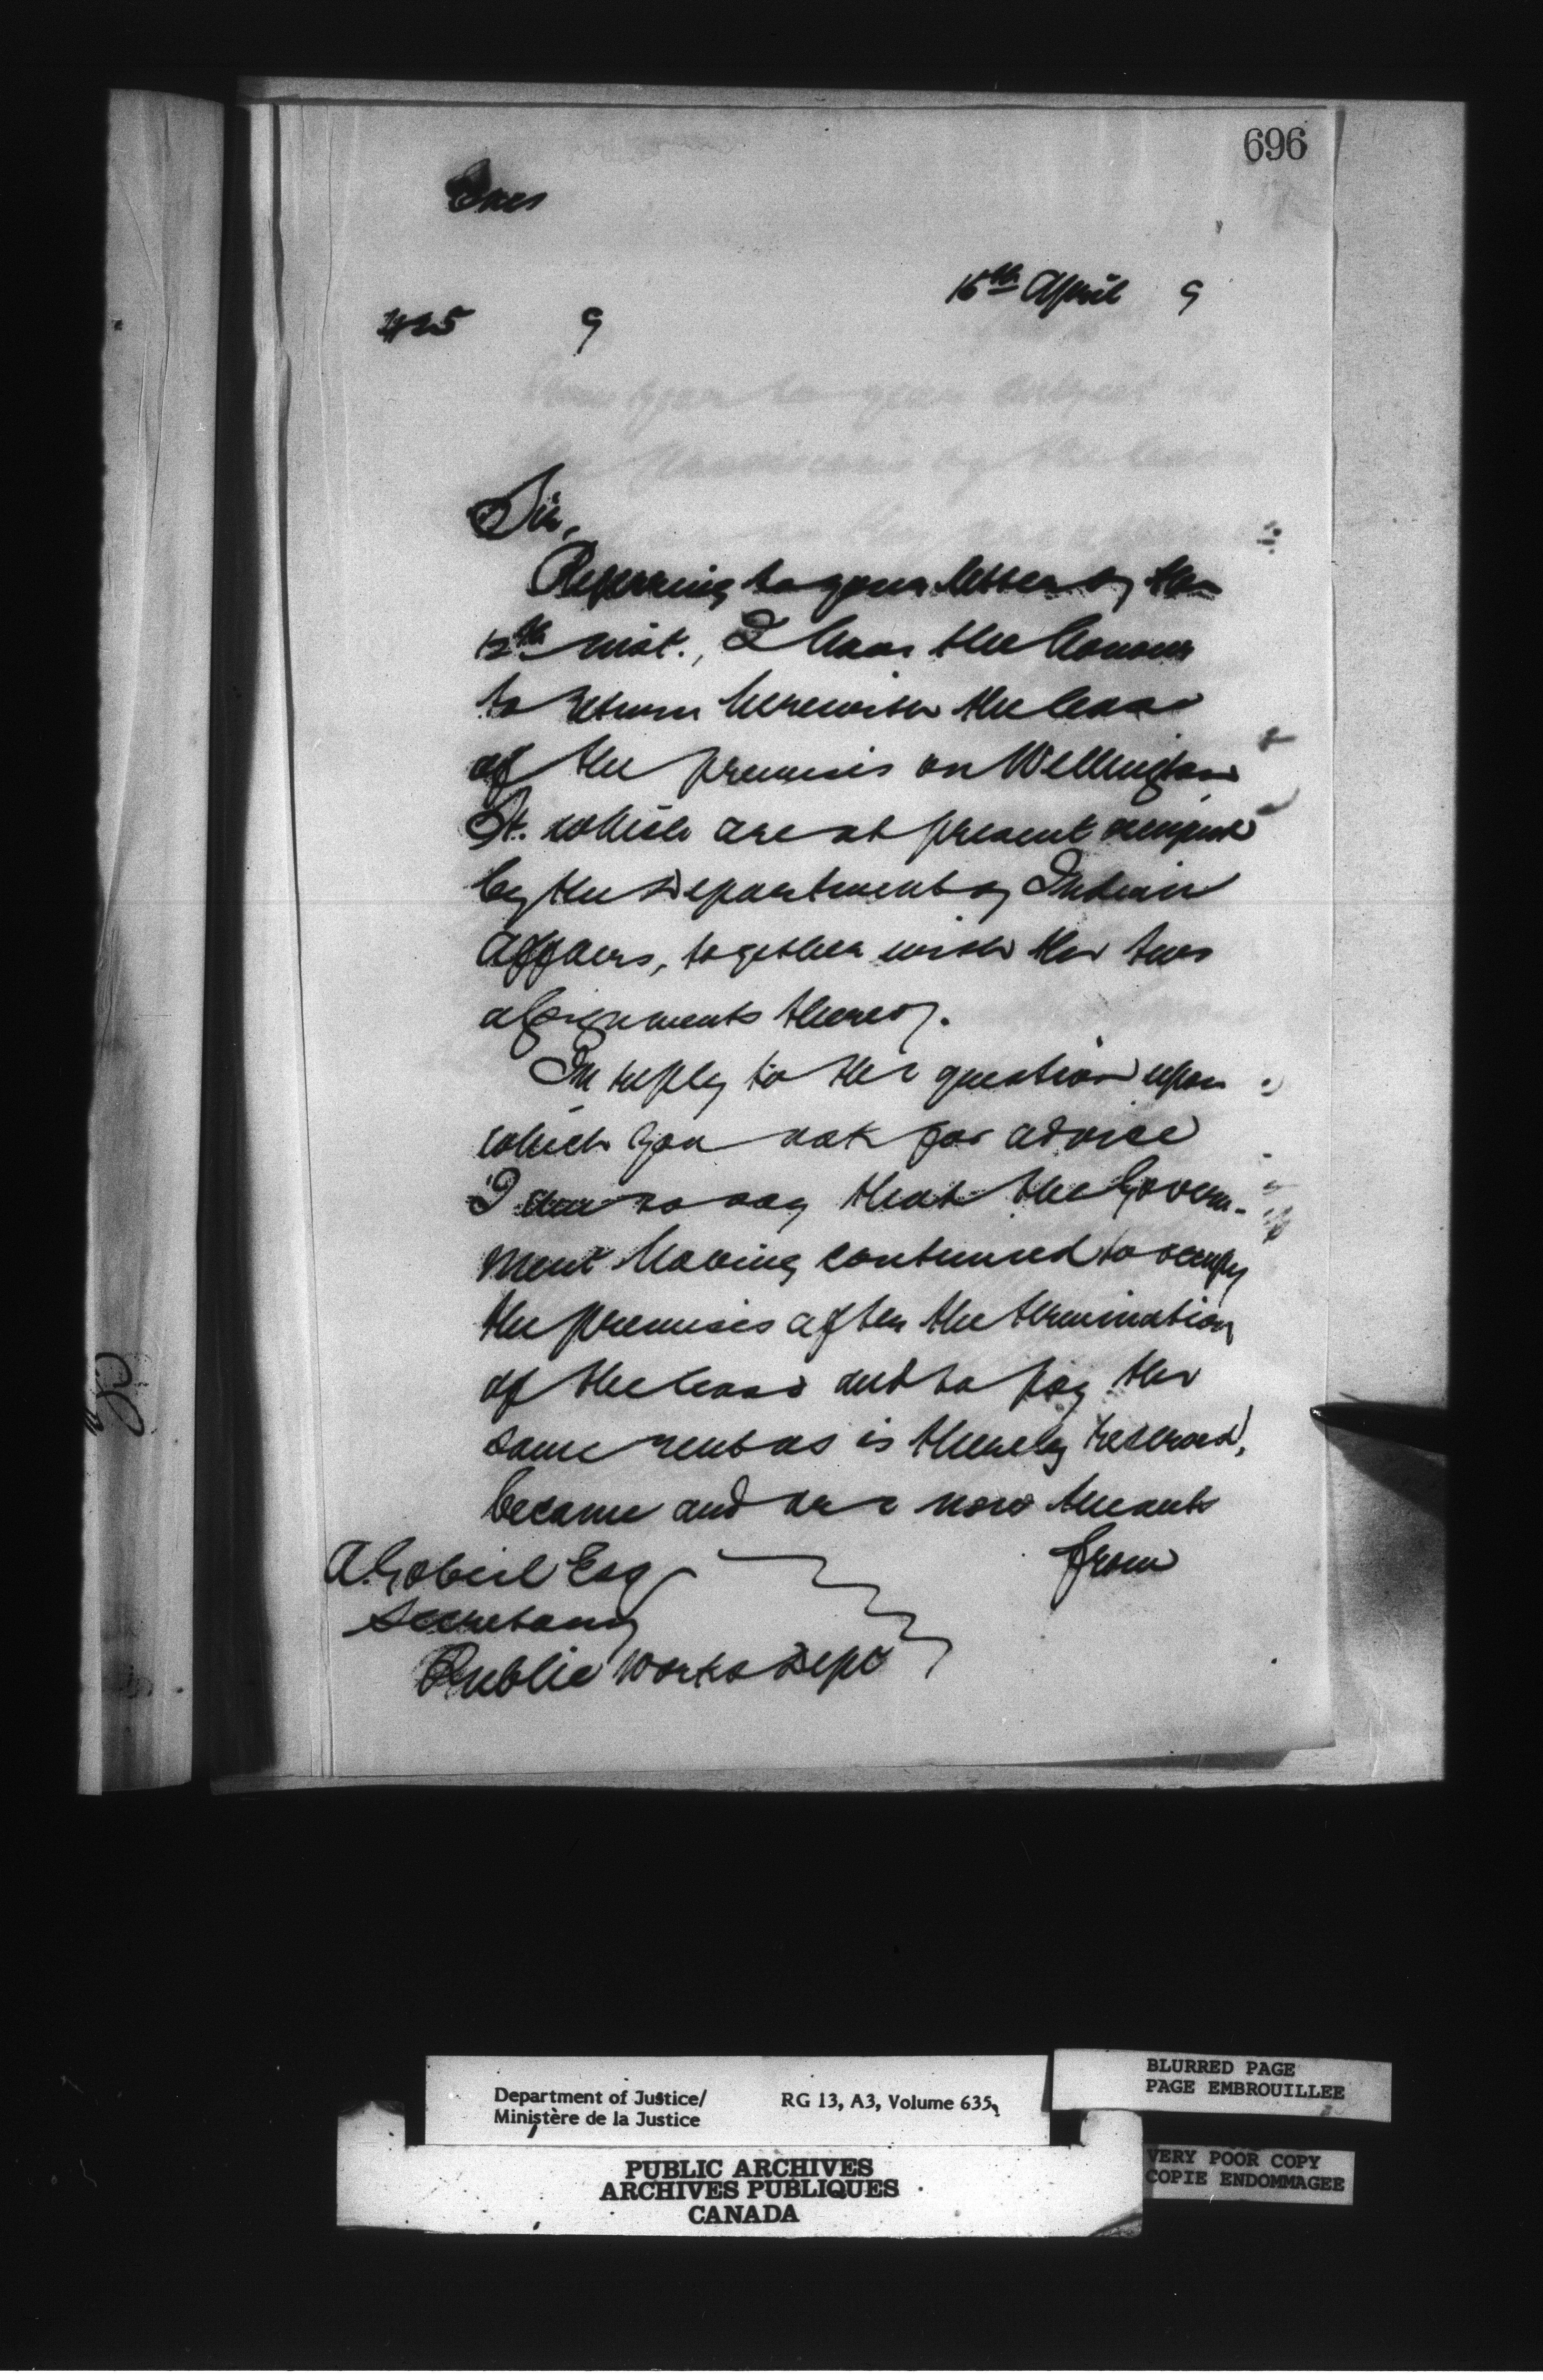 696
Encs
16th April 9
425 9
Sir,
Referring to your letter of the
12th inst., I have the honour
to return herewith the lease
of the premises on Wellington
St. which are at present occupied
by the Department of Indian
Affairs, together with the two
assignments thereof.
In reply to the question upon
which you ask for advice
I have to say that the Govern-
ment having continued to occupy
the premises after the termination
of the lease and to pay the
same rent as is thereby reserved,
became and are now tenants
from
A. Gobeil Esq
Secretary
Public Works Dept
Department of Justice/
Ministère de la Justice
RG 13, A3, Volume 635
BLURRED PAGE
PAGE EMBROUILLEE
PUBLIC ARCHIVES
ARCHIVES PUBLIQUES
CANADA
VERY POOR COPY
COPIE ENDOMMAGEE